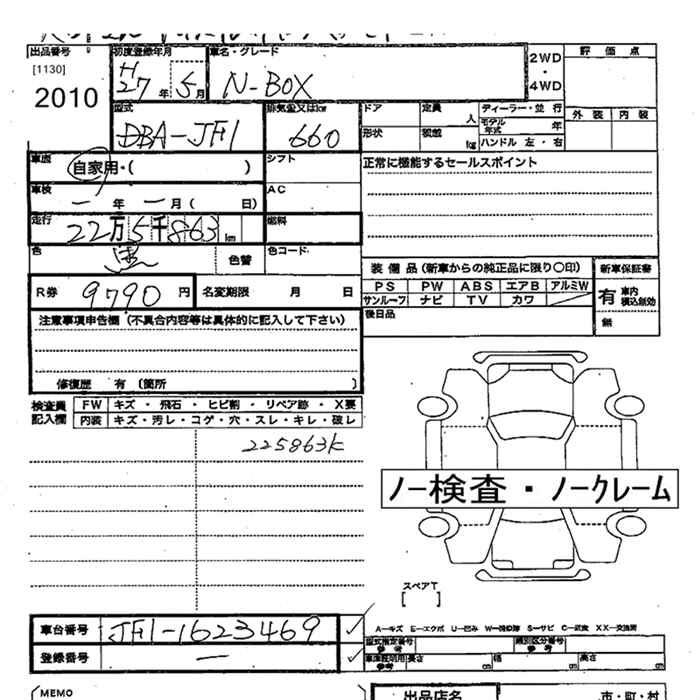 出品番号
[1130]
2010
初度登録年月
H27年5月
車名・グレード
N-BOX
2WD・4WD
評価点
外装 内装
型式
DBA-JF1
排気量又はkw
660
ドア
定員 人
ディーラー・並行
形状
積載 kg
モデル年式 年
ハンドル 左・右
車歴
自家用・( )
シフト
正常に機能するセールスポイント
車検
ー年ー月( 日)
AC
走行
22万5千863km
燃料
色
黒
色替
色コード
装備品(新車からの純正品に限り〇印)
新車保証書
PS PW ABS エアB アルミW
サンルーフ ナビ TV カワ
有 車内積込有効
無
R券 9790円
名変期限 月 日
後日品
注意事項申告欄(不具合内容等は具体的に記入して下さい)
修復歴 有〔箇所 〕
検査員記入欄
FW キズ・飛石・ヒビ割・リペア跡・X要
内装 キズ・汚レ・コゲ・穴・スレ・キレ・破レ
225863K
ノー検査・ノークレーム
スペアT
[ ]
車台番号 JF1-1623469
A-キズ E-エクボ U-凹ミ
S-サビ
XX-交換済
型式指定番号 参考
類別区分番号 参考
登録番号 ー
車庫証明用 参考 長さ cm 幅 cm 高さ cm
(MEMO
出品店名
市・町・村